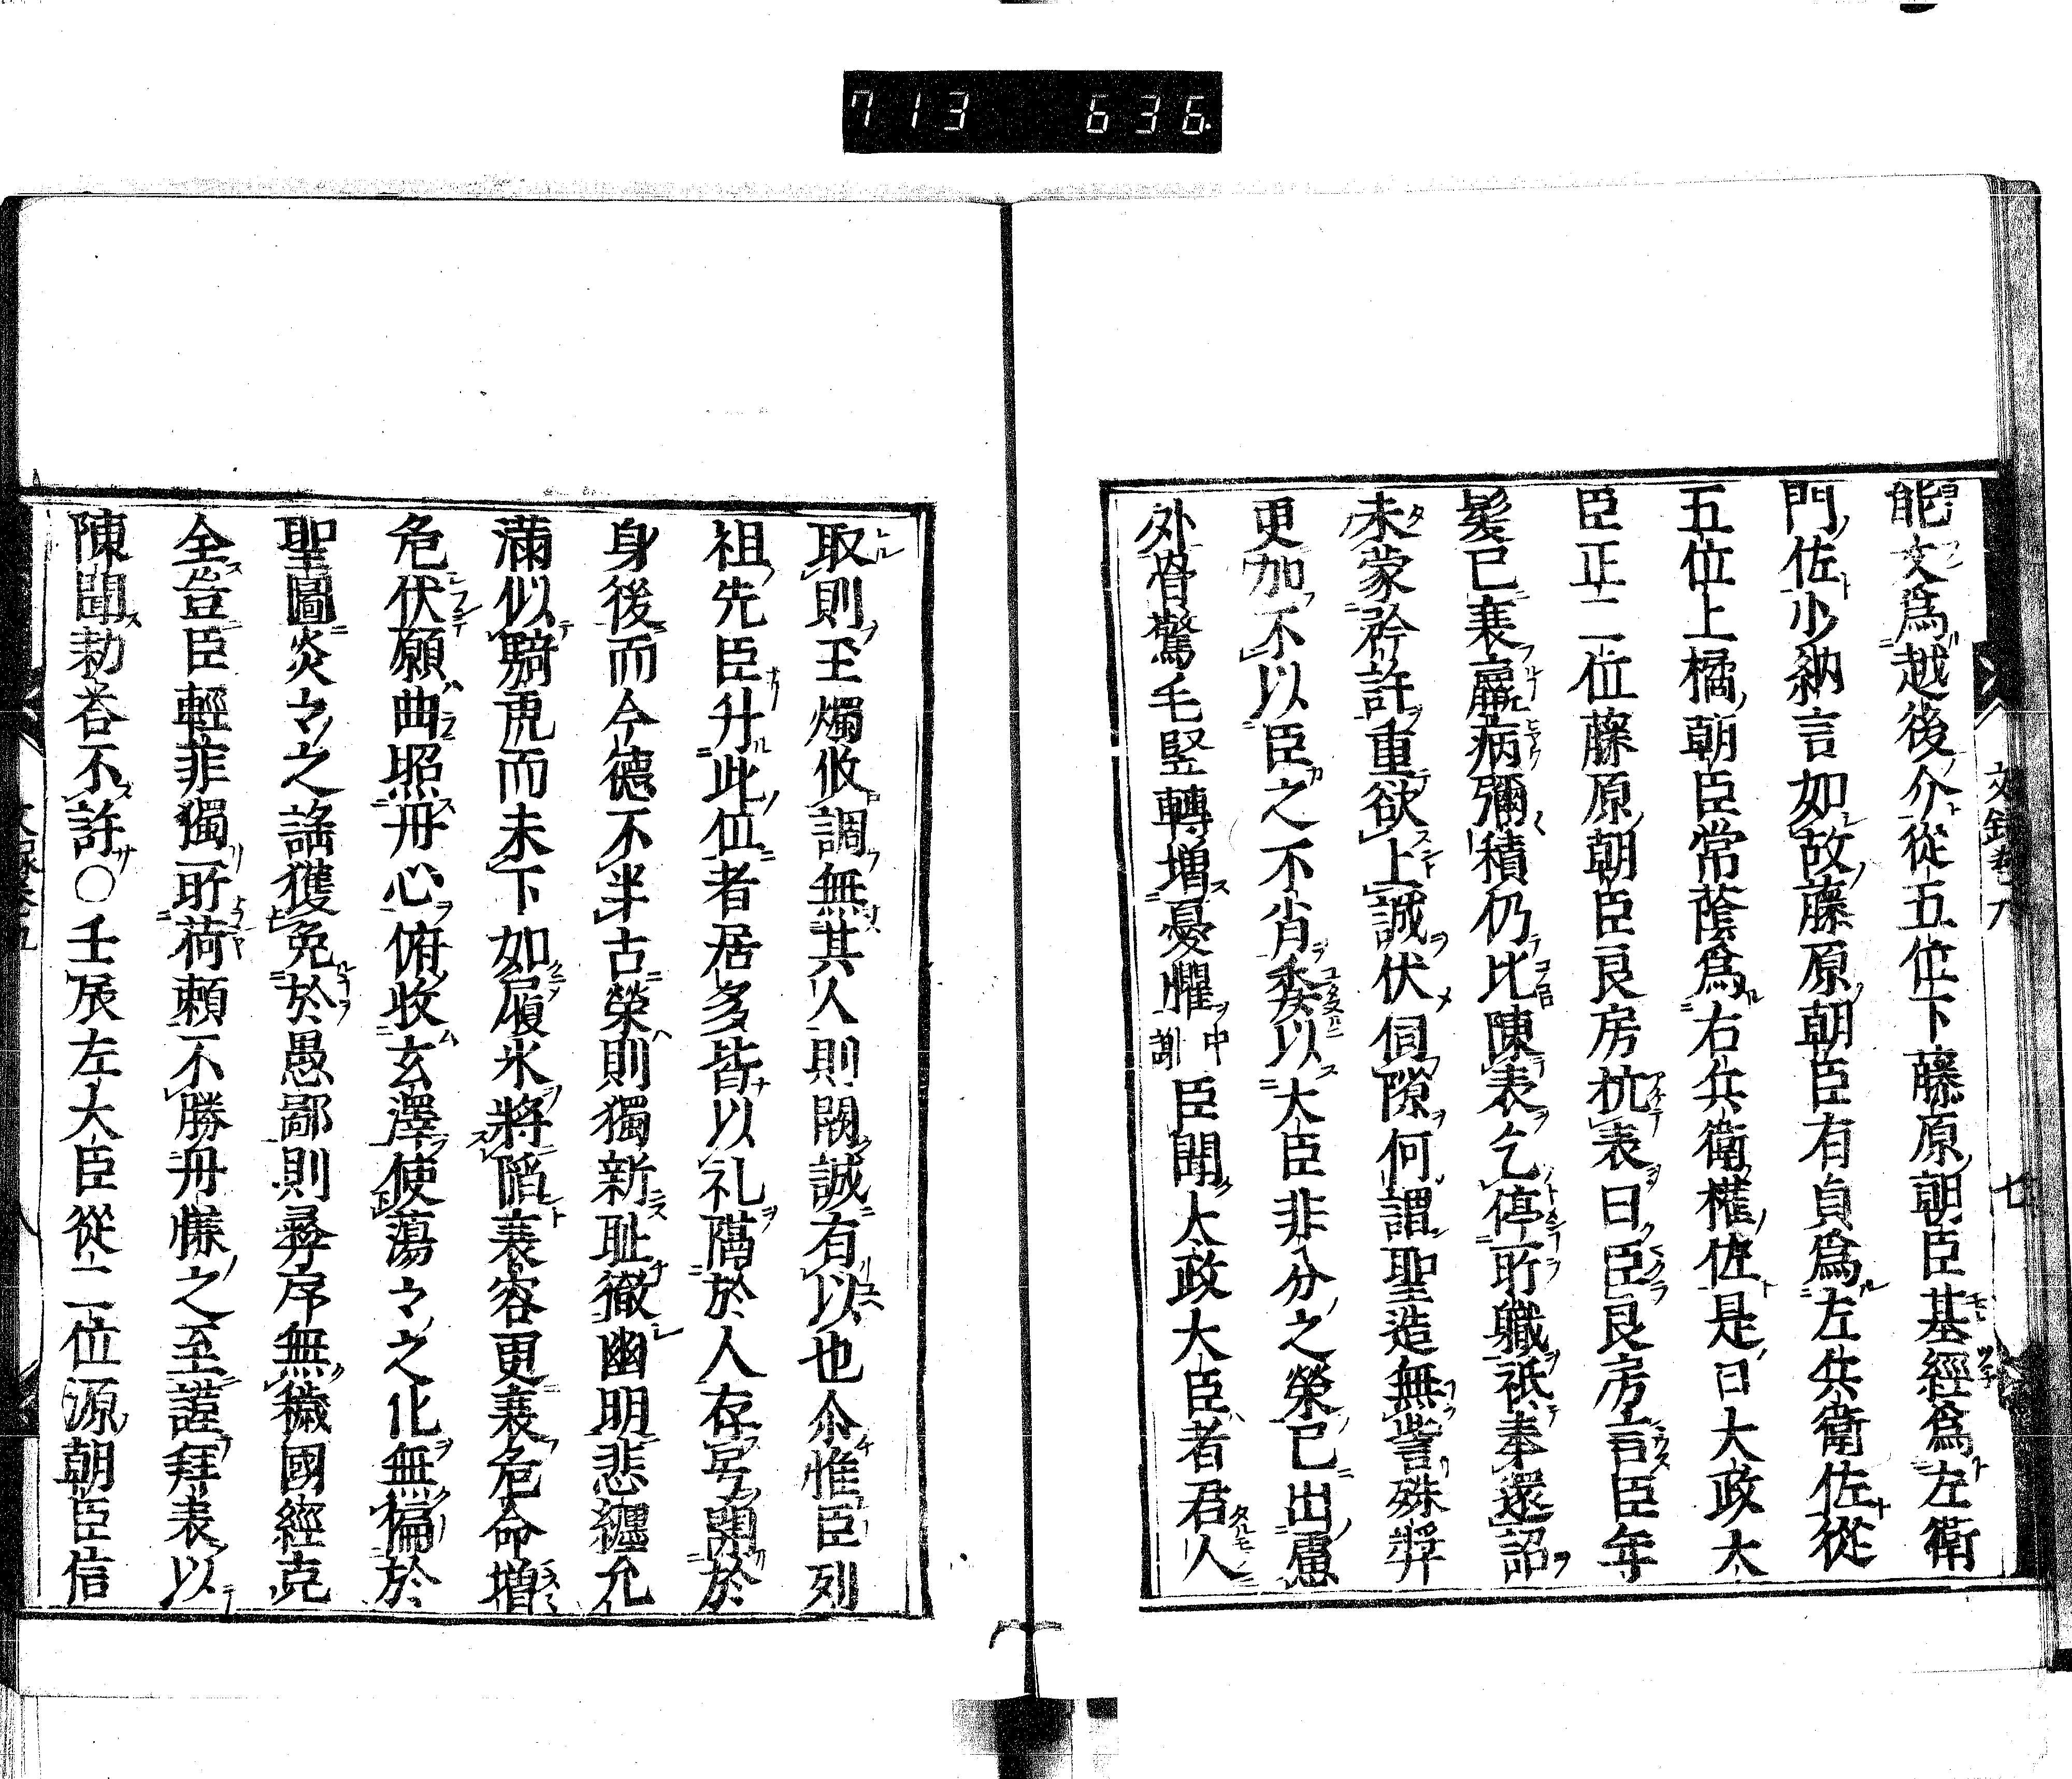 713 636
能文爲越後介從五位下藤原朝臣基經爲左衛
門佐少納言如故藤原朝臣有貞爲左兵衛佐從
五位上橘朝臣常蔭爲右兵衛權佐是日大政大
臣正二位藤原朝臣良房抗表曰臣良房言臣年
髮已衰羸病彌積仍比陳表乞停所職祗奉還詔
未蒙矜許重欲上誠伏伺隙何謂聖造無訾殊奬
更加不以臣之不肖委以大臣非分之榮已出慮
外骨驚毛竪轉増憂懼中謝臣聞太政大臣者君人
取則玉燭攸調無其人則闕誠有以也尒惟臣列
祖先臣升此位者居多皆以礼隔於人存号開於
身後而今德不半古榮則獨新耻徹幽明悲纏允
滿似騎虎而未下如履氷將陷衰容更衰危命増
危伏願曲照丹心俯收玄澤使蕩々之化無偏於
聖圖炎々之謠獲免於愚鄙則彝序無穢國經克
全豈臣輕菲獨所荷頼不勝丹慊之至謹拜表以
陳聞勅荅不許○壬辰左大臣從二位源朝臣信